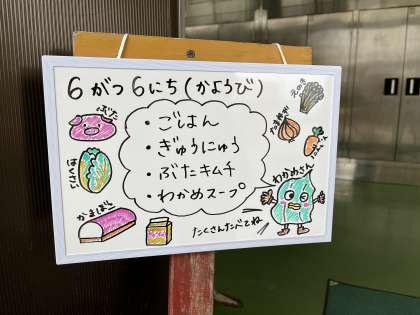 6がつ6にち(かようび)
ぶた
はくさい
かまぼこ
・ごはん
・ぎゅうにゅう
・ぶたキムチ
・わかめスープ
えのき
たまねぎ
にんじん
わかめさん
たくさんたべてね